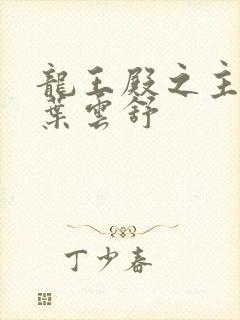 龍王殿之主
葉雲舒
丁少春